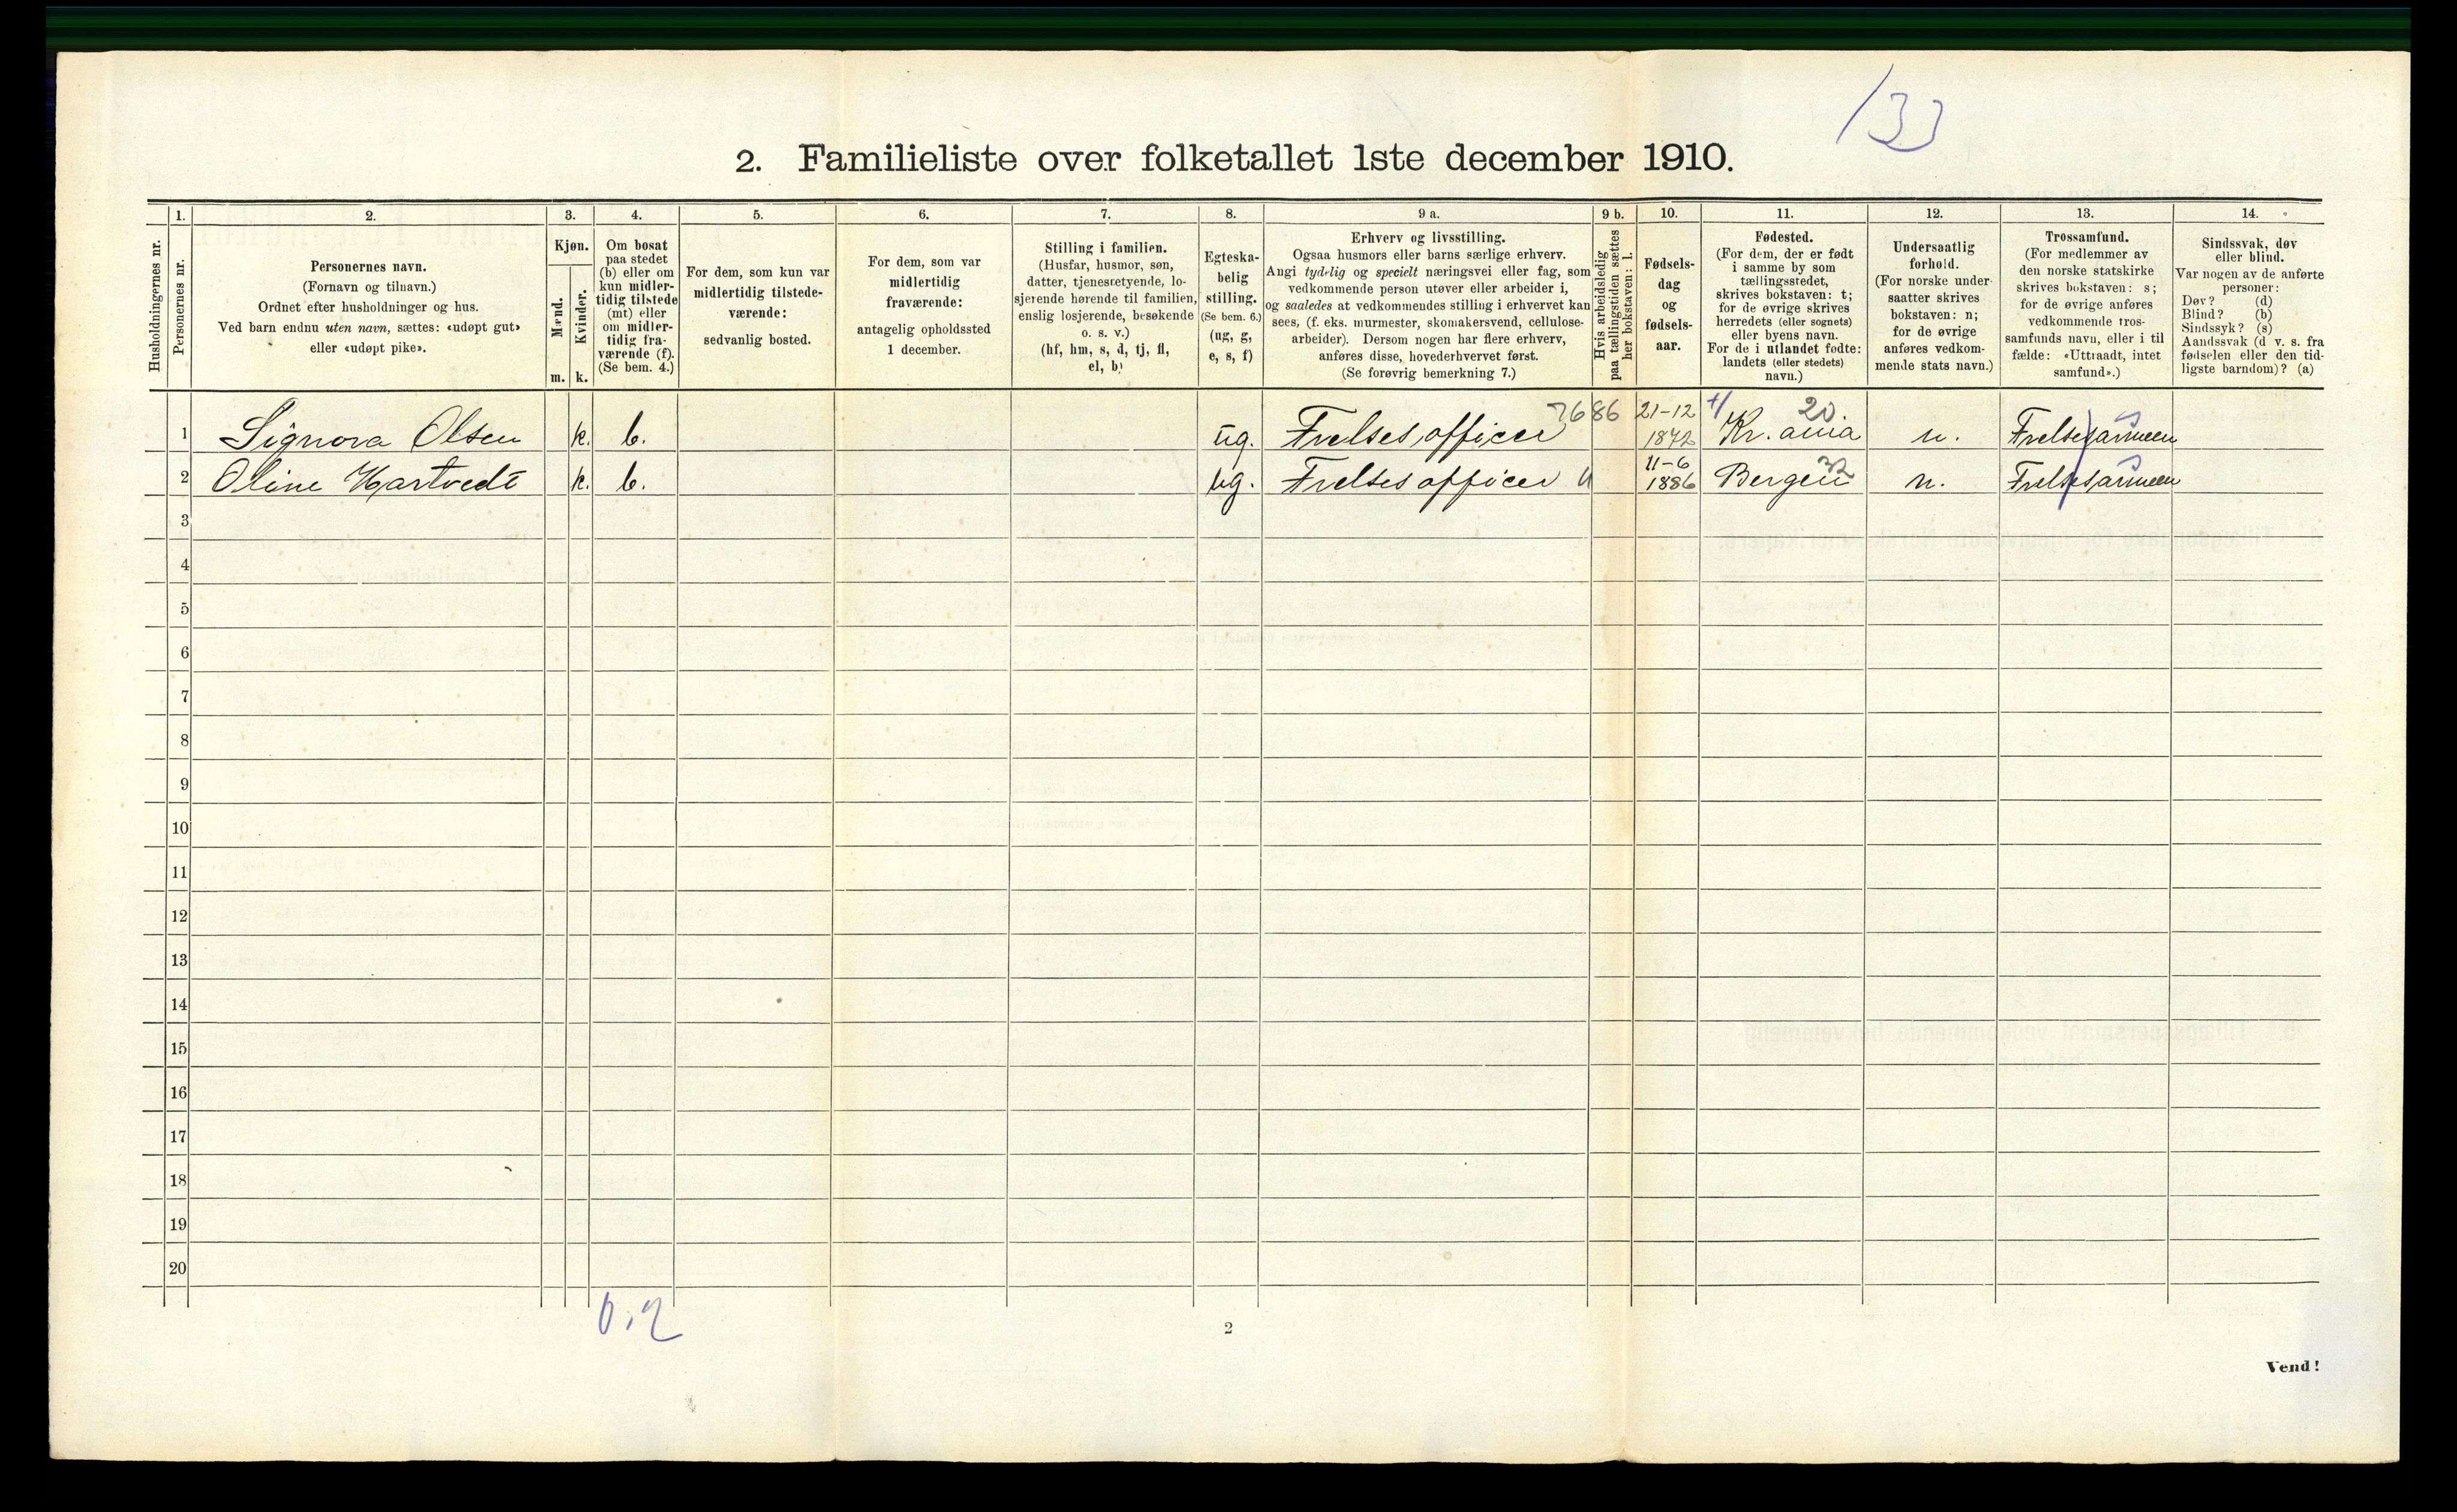 133
2. Familieliste over folketallet 1ste december 1910.
Husholdningernes nr.
1.
Personernes nr.
2.
Personernes navn.
(Fornavn og tilnavn.)
Ordnet efter husholdninger og hus.
Ved barn endnu uten navn, sættes: «udøpt gut»
eller «udøpt pike».
3.
Kjøn.
Mænd.
Kvinder.
m. k.
4.
Om bosat
paa stedet
(b) eller om
kun midler-
tidig tilstede
(mt) eller
om midler-
tidig fra-
værende (f).
(Se bem. 4.)
5.
For dem, som kun var
midlertidig tilstede-
værende:
sedvanlig bosted.
6.
For dem, som var
midlertidig
fraværende:
antagelig opholdssted
1 december.
7.
Stilling i familien.
(Husfar, husmor, søn,
datter, tjenestetyende, lo-
sjerende hørende til familien,
enslig losjerende, besøkende
o. s. v.)
(hf, hm, s, d, tj, fl,
el, b)
8.
Egteska-
belig
stilling.
(Se bem. 6.)
(ug, g,
e, s, f)
9 a.
Erhverv og livsstilling.
Ogsaa husmors eller barns særlige erhverv.
Angi tydelig og specielt næringsvei eller fag, som
vedkommende person utøver eller arbeider i,
og saaledes at vedkommendes stilling i erhvervet kan
sees, (f. eks. murmester, skomakersvend, cellulose-
arbeider). Dersom nogen har flere erhverv,
anføres disse, hovederhvervet først.
(Se forøvrig bemerkning 7.)
9 b.
Hvis arbeidsledig
paa tællingstiden sættes
her bokstaven: l.
10.
Fødsels-
dag
og
fødsels-
aar.
11.
Fødested.
(For dem, der er født
i samme by som
tællingsstedet,
skrives bokstaven: t;
for de øvrige skrives
herredets (eller sognets)
eller byens navn.
For de i utlandet fødte:
landets (eller stedets)
navn.)
12.
Undersaatlig
forhold.
(For norske under-
saatter skrives
bokstaven: n;
for de øvrige
anføres vedkom-
mende stats navn.)
13.
Trossamfund.
(For medlemmer av
den norske statskirke
skrives bokstaven: s;
for de øvrige anføres
vedkommende tros-
samfunds navn, eller i til
fælde: «Uttraadt, intet
samfund».)
14.
Sindssvak, døv
eller blind.
Var nogen av de anførte
personer:
Døv? (d)
Blind? (b)
Sindssyk? (s)
Aandssvak (d v. s. fra
fødselen eller den tid-
ligste barndom)? (a)
7686 21-12 20.
1 Signora Olsen k. b. ug. Frelsesofficer 1872 Kr.ania n. Frelsesarmeen
11-6 32
2 Oline Hartvedt k. b. ug. Frelsesofficer 1886 Bergen n. Frelsesarmeen
3
4
5
6
7
8
9
10
11
12
13
14
15
16
17
18
19
20
0,2
2
Vend!